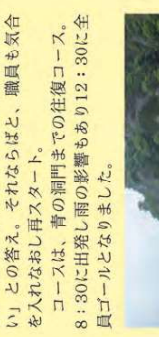 い」との答え。それならばと、職員も気合
を入れなおし再スタート。
　コースは、青の洞門までの往復コース。
8：30に出発し雨の影響もあり12：30に全
員ゴールとなりました。